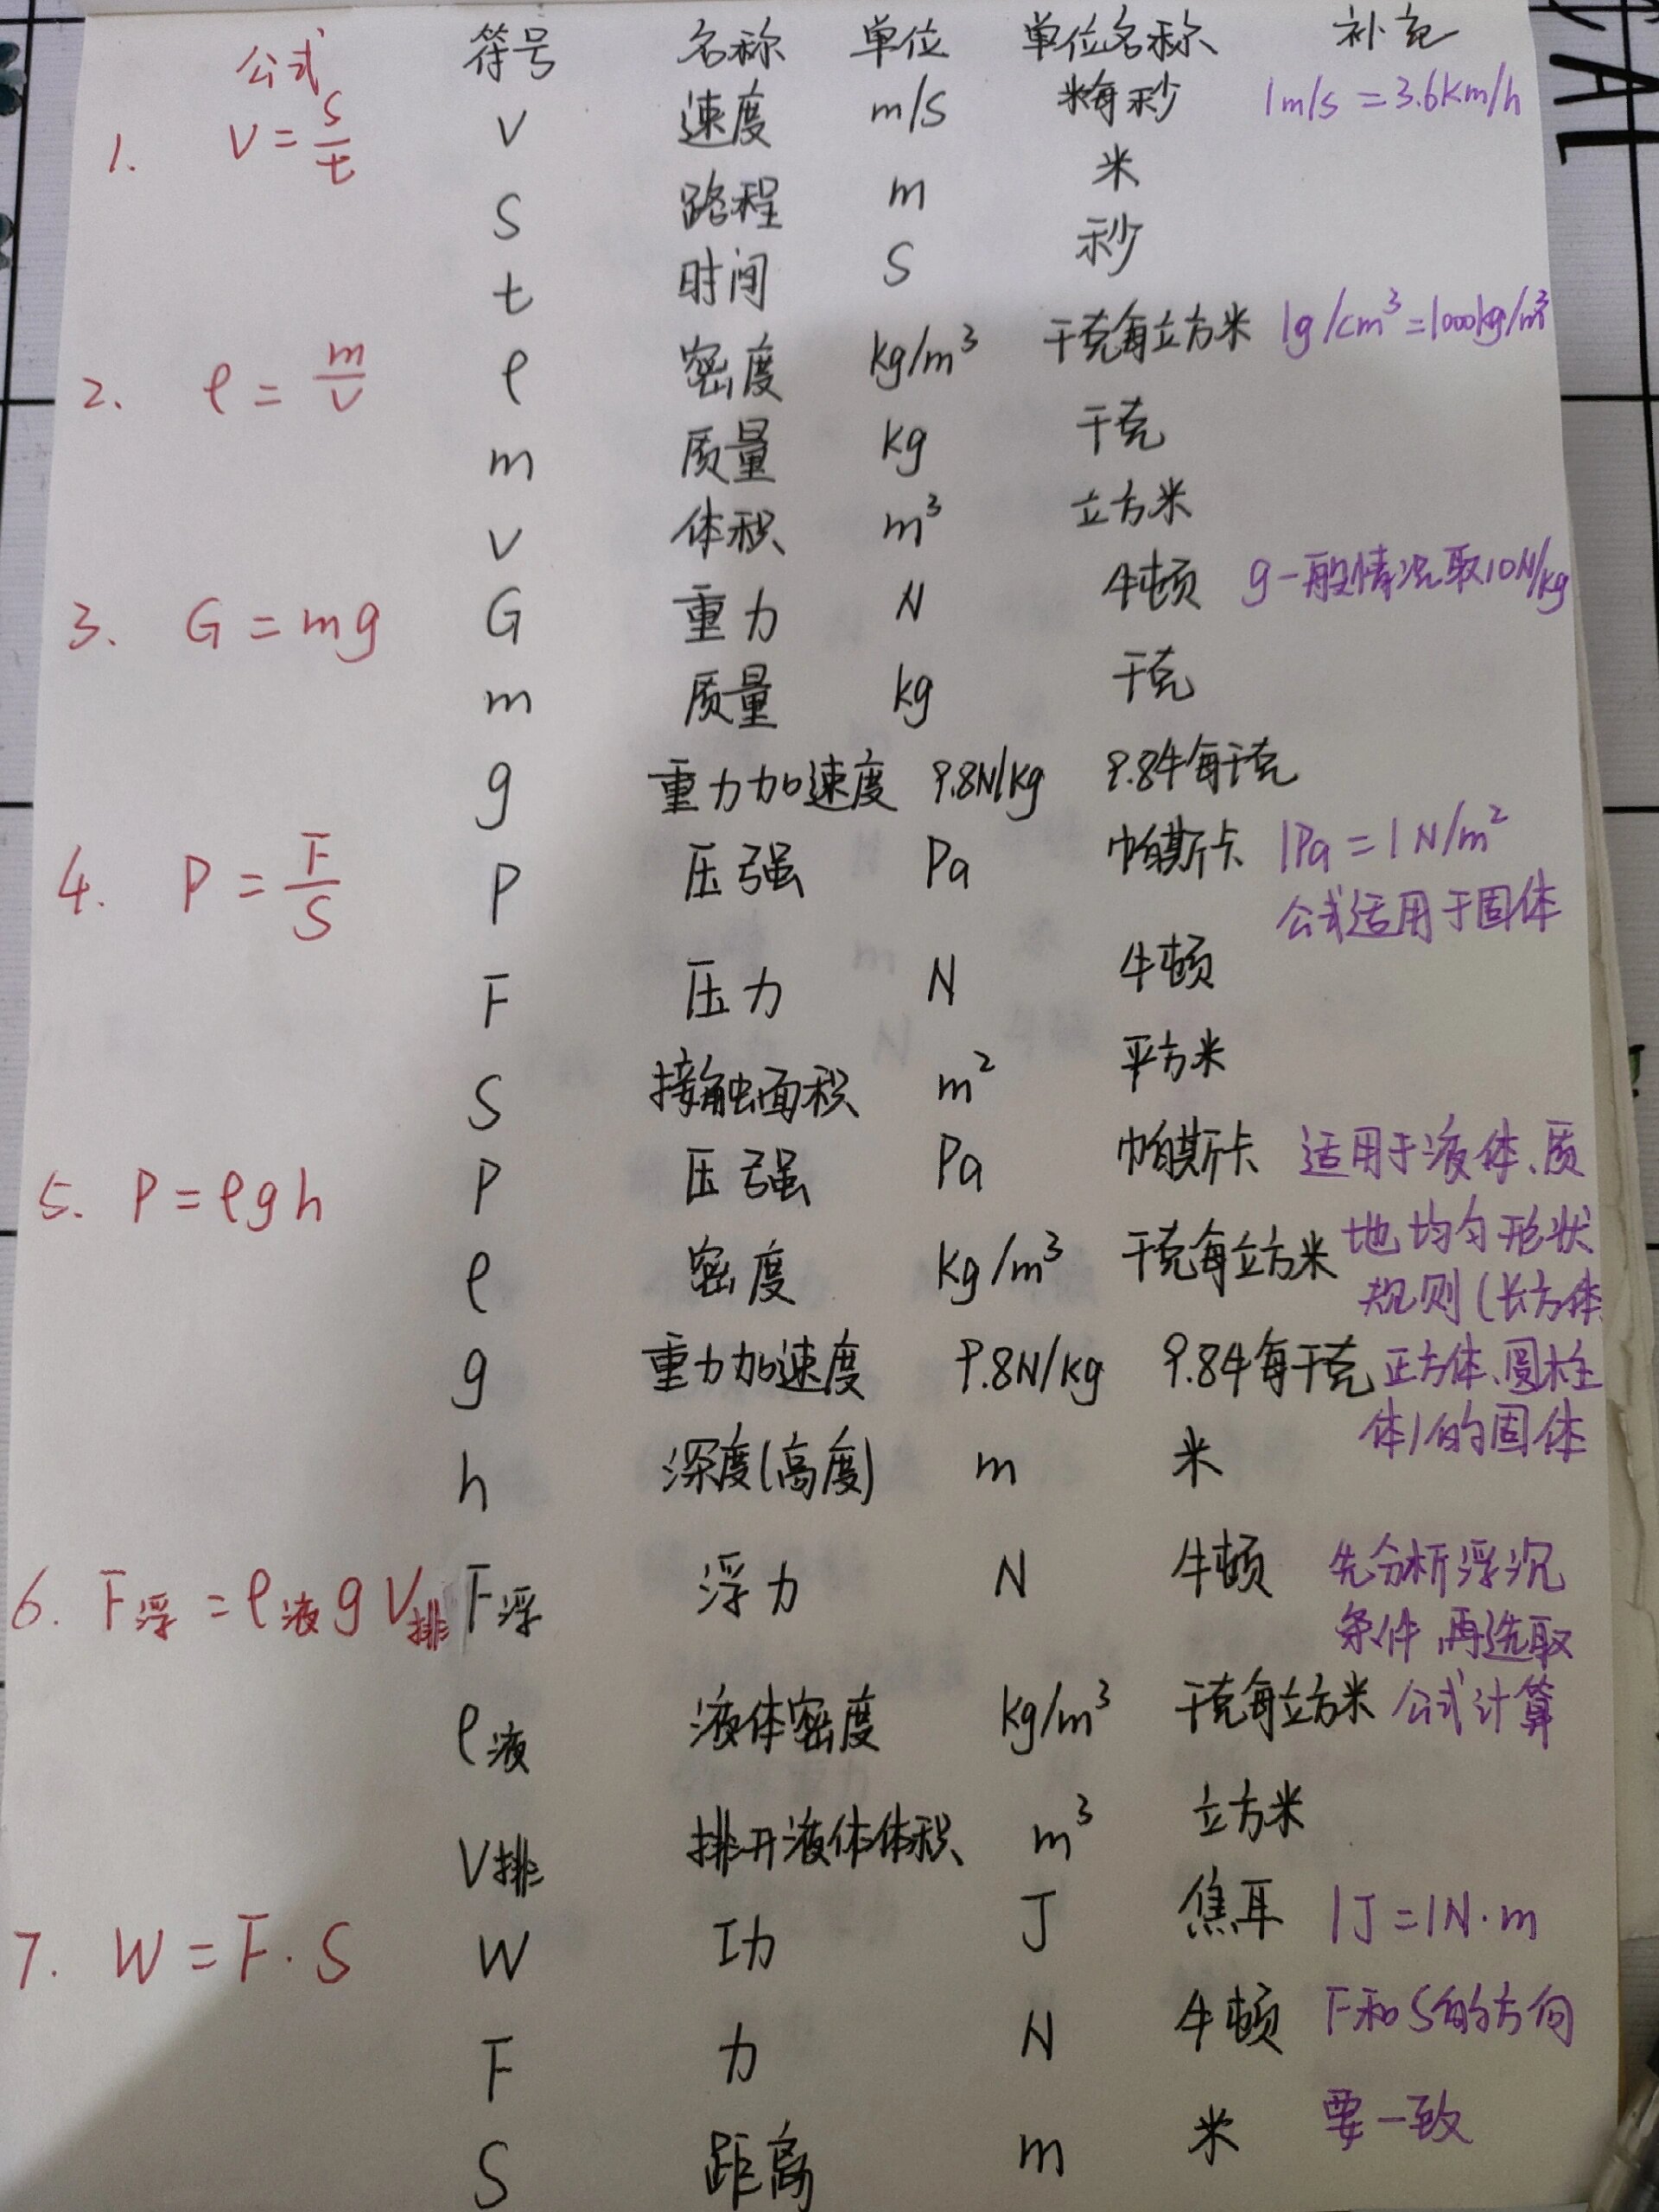 公式 符号 名称 单位 单位名称 补充
1. V=s/t V 速度 m/s 米每秒 1m/s=3.6km/h
S 路程 m 米
t 时间 S 秒
2. ρ=m/v ρ 密度 kg/m³ 千克每立方米 1g/cm³=1000kg/m³
m 质量 kg 千克
V 体积 m³ 立方米
3. G=mg G 重力 N 牛顿 g一般情况取10N/kg
m 质量 kg 千克
g 重力加速度 9.8N/kg 9.8牛每千克
4. P=F/S P 压强 Pa 帕斯卡 1Pa=1N/m²
公式适用于固体
F 压力 N 牛顿
S 接触面积 m² 平方米
5. P=ρgh P 压强 Pa 帕斯卡 适用于液体、质
ρ 密度 kg/m³ 千克每立方米 地均匀形状
规则(长方体
g 重力加速度 9.8N/kg 9.8牛每千克 正方体、圆柱
体)的固体
h 深度(高度) m 米
6. F浮=ρ液gV排 F浮 浮力 N 牛顿 先分析浮沉
条件,再选取
ρ液 液体密度 kg/m³ 千克每立方米 公式计算
V排 排开液体体积 m³ 立方米
7. W=F·S W 功 J 焦耳 1J=1N·m
F 力 N 牛顿 F和S的方向
要一致
S 距离 m 米